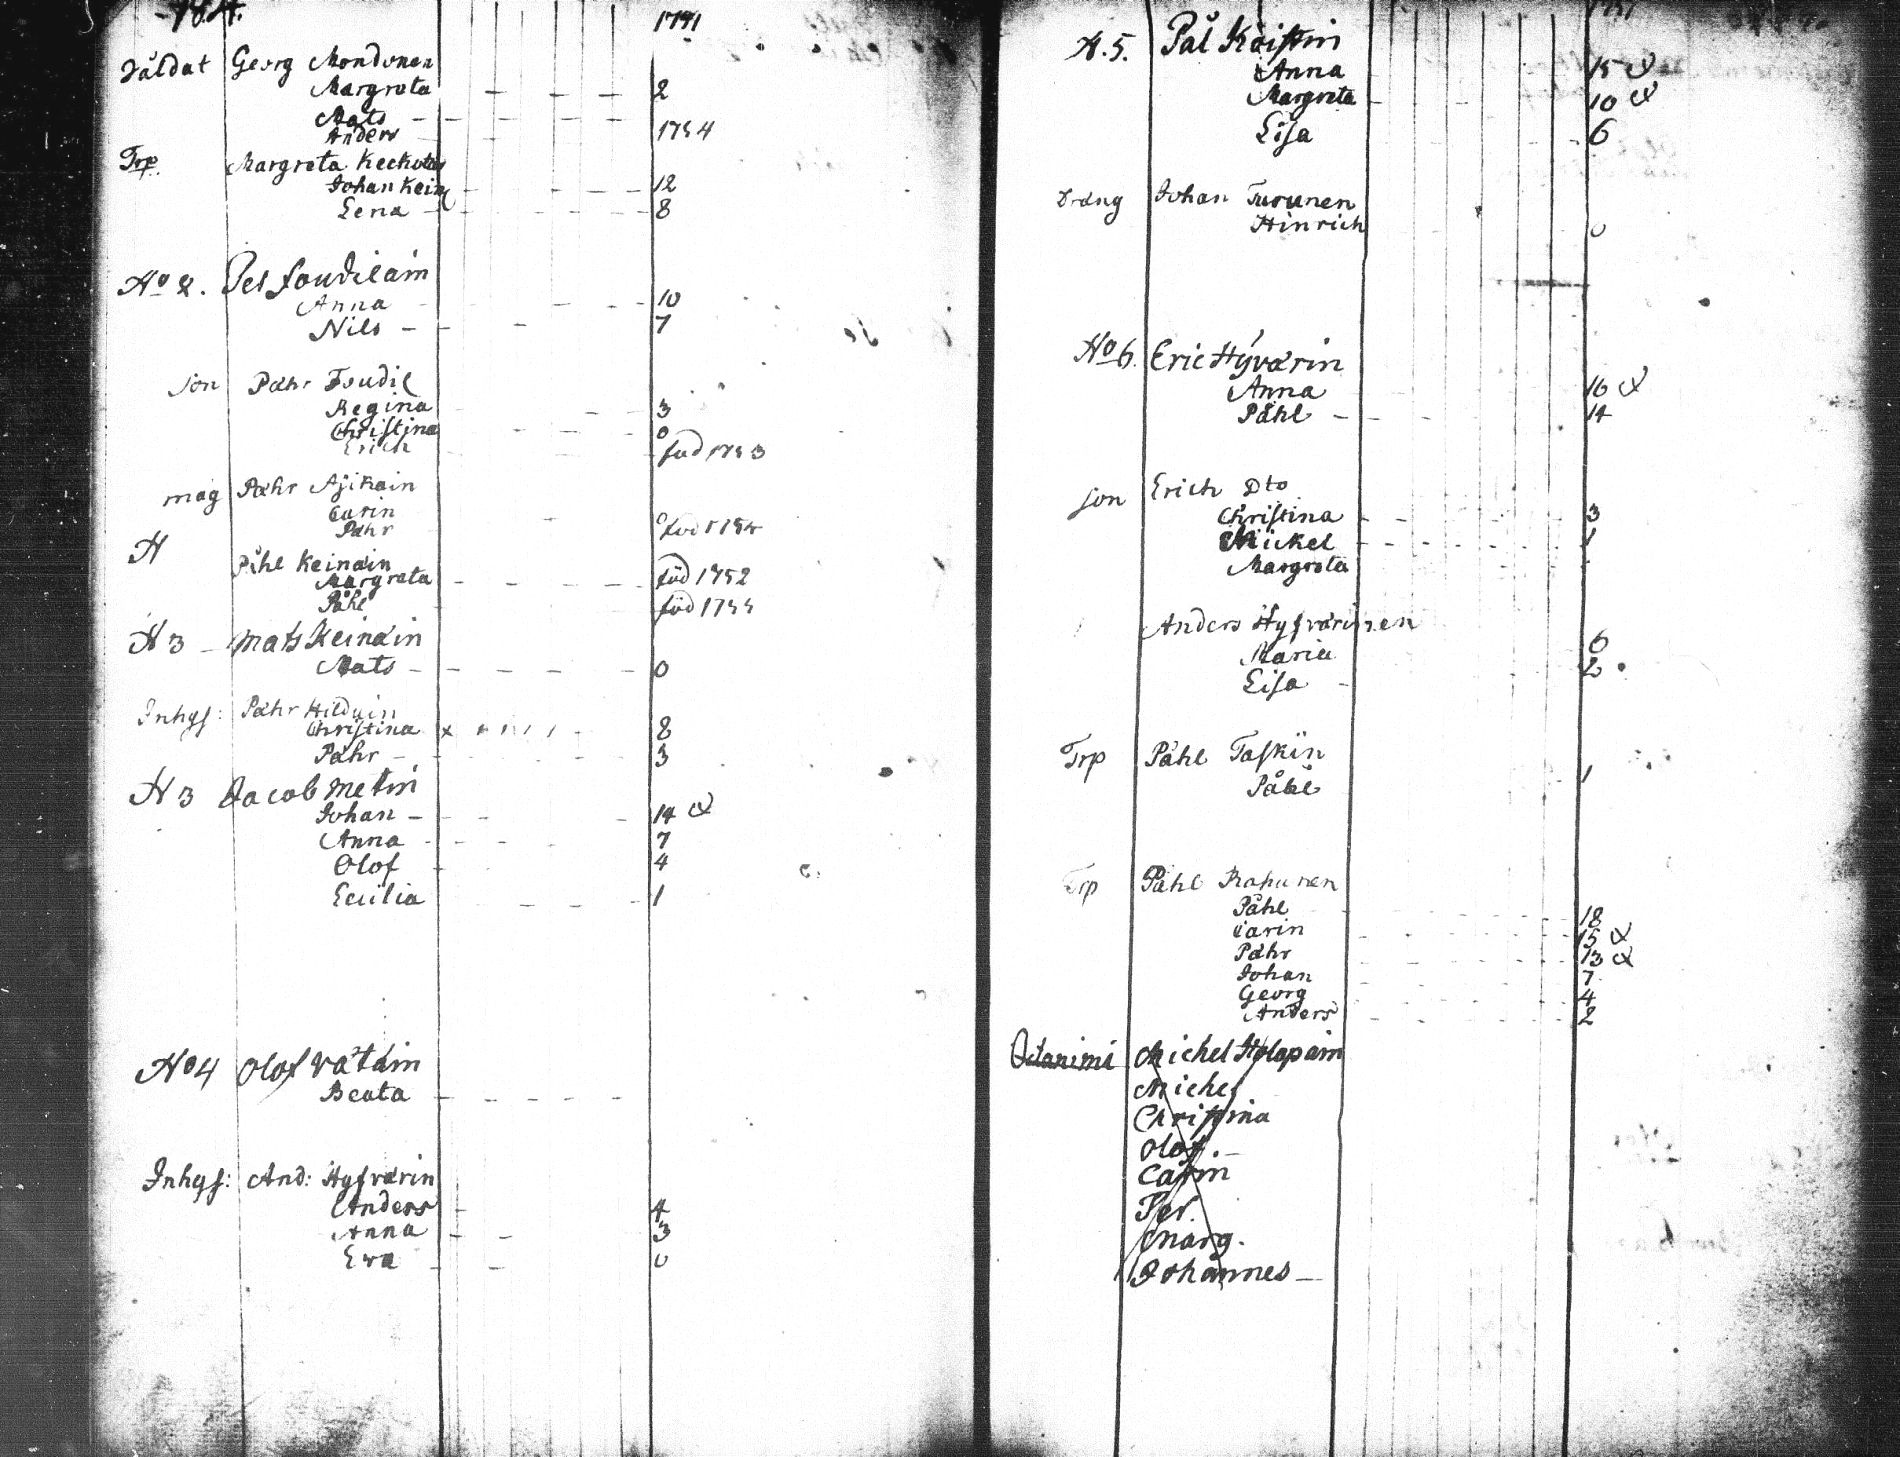 1751
Såldat Georg Mondonen
Margreta 2
Mats
Anders 1754
Trp. Margreta Keckoin
Johan Kein 12
Lena 8
No 2. Pet Foudilain
Anna 10
Nils 7
Son Pähr Foudil
Regina 3
Christina 0
Erich föd 1753
måg Pähr Ajikain
Carin 0
Pähr föd 1754
N
Påhl Keinäin
Margreta föd 1752
Påhl föd 1755
N 3 Mats Keinäin
Mats 0
Inhys: Pähr Hilduin
Christina 8
Pähr 3
N 3 Jacob Metin
Johan 14
Anna 7
Olof 4
Cecilia 1
No 4 Olof Vätäin
Beata
Inhys: And: Hyfvärin
Anders 4
Anna 3
Eva 0
N. 5. Pål Käistin
Anna 15
Margreta 10
Lisa 6
Dräng Johan Turunen
Hinrich 0
No 6. Eric Hÿvärin
Anna 16
Påhl 14
Son Erich Dto
Christina 3
Mickel 1
Margreta
Anders Hyfvärinen 6
Maria 2
Lisa
Trp Påhl Taskin
Påhl 1
Trp Påhl Rahunen
Påhl 18
Carin 15
Pähr 13
Johan 7
Georg 4
Anders 2
Michel Holopain
Michel
Christina
Olof
Carin
Per.
Marg.
Johannes